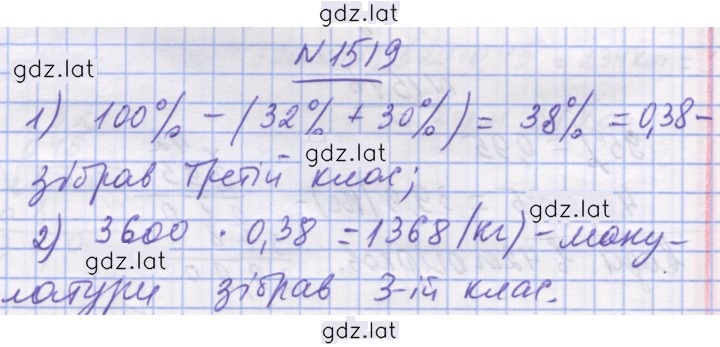 gdz.lat
gdz.lat
N 1519
1) 100% - (32% + 30%) = 38% = 0,38 -
gdz.lat
gdz.lat
зібрав третій клас;
gdz.lat
2) 3600 · 0,38 = 1368 (кг) - маку-
gdz.lat
латури зібрав 3-ій клас.
gdz.lat